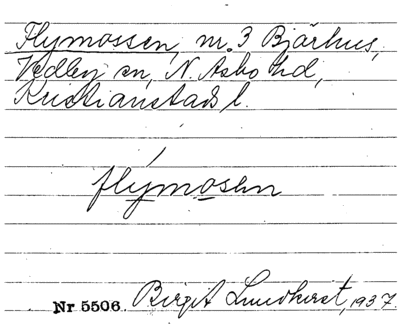 Flymossen, nr. 3 Bjärhus,
Vedby sn, N. Åsbo hd,
Kristianstads l.
flýmosen
Nr 5506. Birgit Lundkvist, 1937.